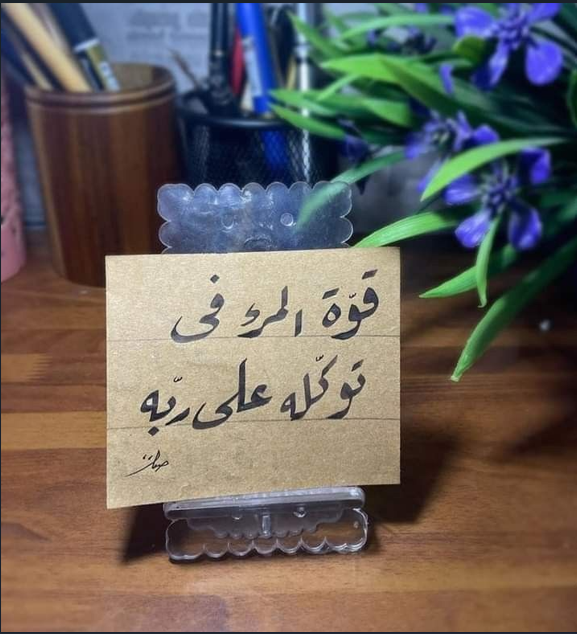 قوّة المرء في
توكّله على ربّه